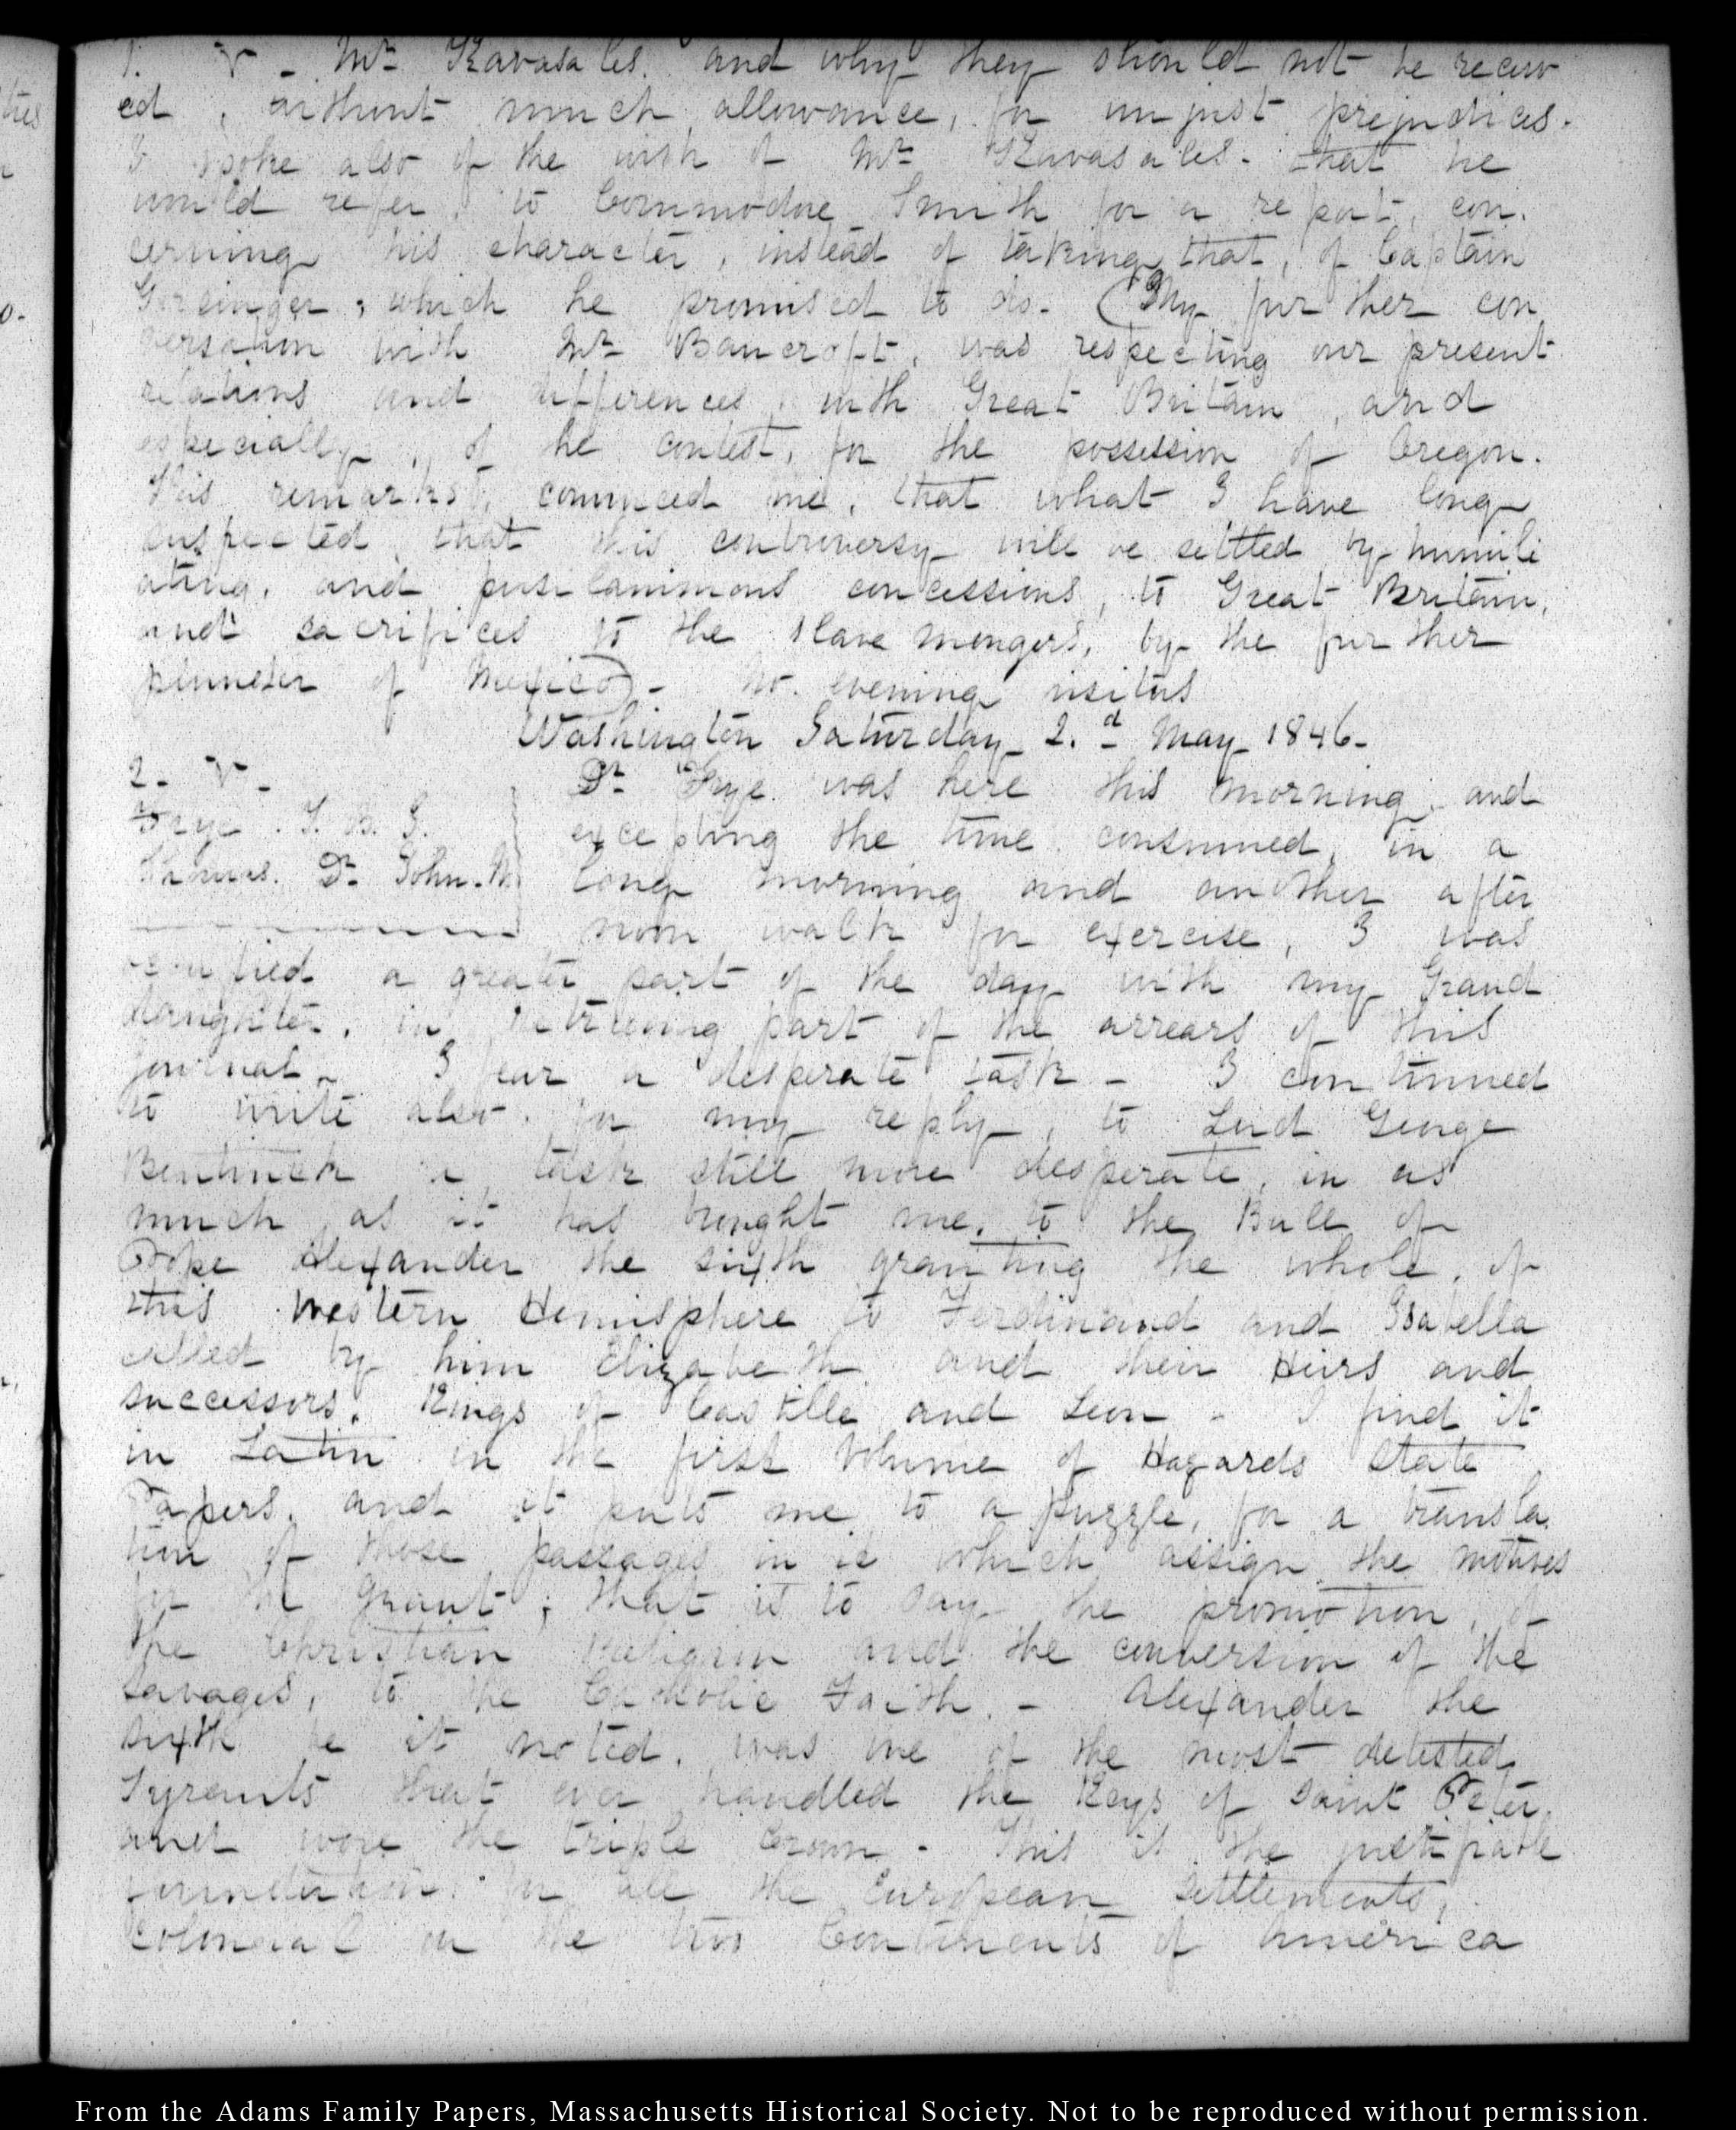 1. V - Mr Kavasales. and why they should not be receiv
ed, without much allowance, for unjust prejudices.
I spoke also of the wish of Mr Kavasales. that he
would refer, to Commodore Smith for a report, con.
cerning his character, instead of taking that, of Captain
which he promised to do. (My further con
versation with Mr Bancroft, was respecting our present
relations and differences, with Great Britain, and
especially, of the contest, for the possession of Oregon.
His remarks, convinced me, that what I have long
suspected, that this controversy will be settled by humili
ating, and pusilanimous concessions, to Great Britain,
and sacrifices to the slave mongers, by the further
plunder of Mexico) - No. evening visitors
Washington Saturday 2.d May 1846.
2. V.
Frye. T. B. J.
Thomas. Dr John. M
Dr Frye was here this morning, and
excepting the time consumed, in a
long morning and another after
noon walk for exercise, I was
occupied a greater part of the day with my Grand
daughter, in retrieving part of the arrears of this
journal - I fear a desperate task - I continued
to write also. for my reply, to Lord George
Bentinck a task still more desperate, in as
much, as it has brought me, to the Bull of
Pope Alexander the sixth granting the whole, of
this Western Hemisphere to Ferdinand and Isabella
called by him Elizabeth and their Heirs and
successors, Kings of Castille and Leon - I find it
in Latin in the first Volume of Hazards State
Papers, and it puts me to a puzzle, for a transla
tion of those passages in it which assign the motives
for the grant; that is to say the promotion, of
the Christian Religion and the conversion of the
savages, to the Catholic Faith. - Alexander the
sixth be it noted, was one of the most detested
Tyrants that ever handled the Keys of Saint Peter,
and wore the triple Crown - This is the justifiable
foundation for all the European settlements,
Colonial on the two Continents of America
From the Adams Family Papers, Massachusetts Historical Society. Not to be reproduced without permission.